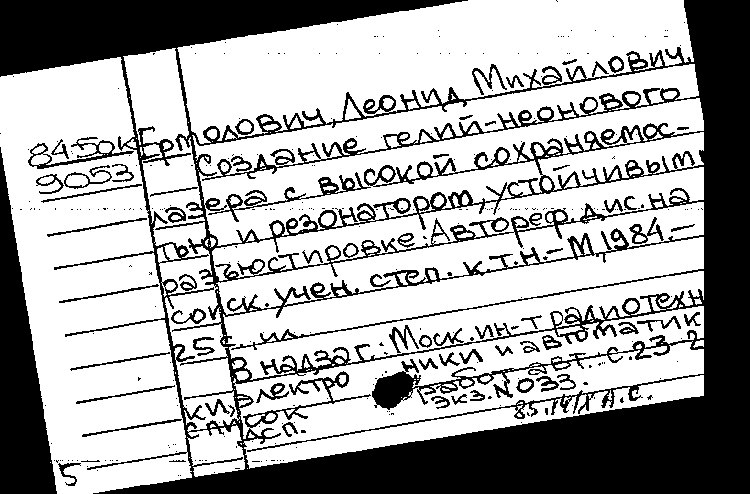 84-50к Ермолович, Леонид Михайлович.
9053 Создание гелий-неонового
лазера с высокой сохраняемос-
тью и резонатором, устойчивым
разъюстировке: Автореф. дис. на
соиск. учен. степ. к.т.н.- М, 1984.-
25 с., ил.
В надзаг.: Моск. ин-т радиотехн
ки, электро ники и автоматик
список работ авт.: с. 23 2
ДСП. Экз. N 033.
85.14/X А.С.
5